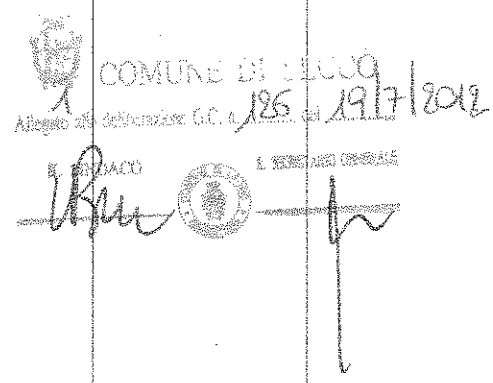 COMUNE DI LECCO
1
Allegato alla deliberazione G.C. n. 126 del 19/7/2012
IL SINDACO IL SEGRETARIO GENERALE